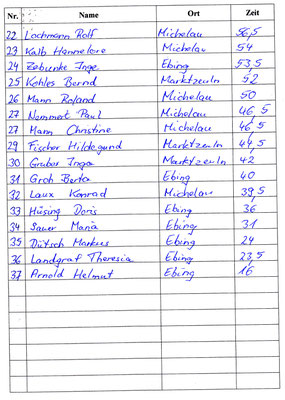 Nr. Name Ort Zeit
22 Lochmann Rolf Michelau 56,5
23 Kalb Hannelore Michelau 54
24 Zebunke Inge Ebing 53,5
25 Kohles Bernd Marktzeuln 52
26 Mann Roland Michelau 50
27 Nemmert Paul Michelau 46,5
27 Mann Christine Michelau 46,5
29 Fischer Hildegund Marktzeuln 44,5
30 Gruber Inga Marktzeuln 42
31 Groh Berta Ebing 40
32 Laux Konrad Michelau 39,5
33 Hüsing Doris Ebing 36
34 Sauer Maria Ebing 31
35 Dütsch Markus Ebing 24
36 Landgraf Theresia Ebing 23,5
37 Arnold Helmut Ebing 16